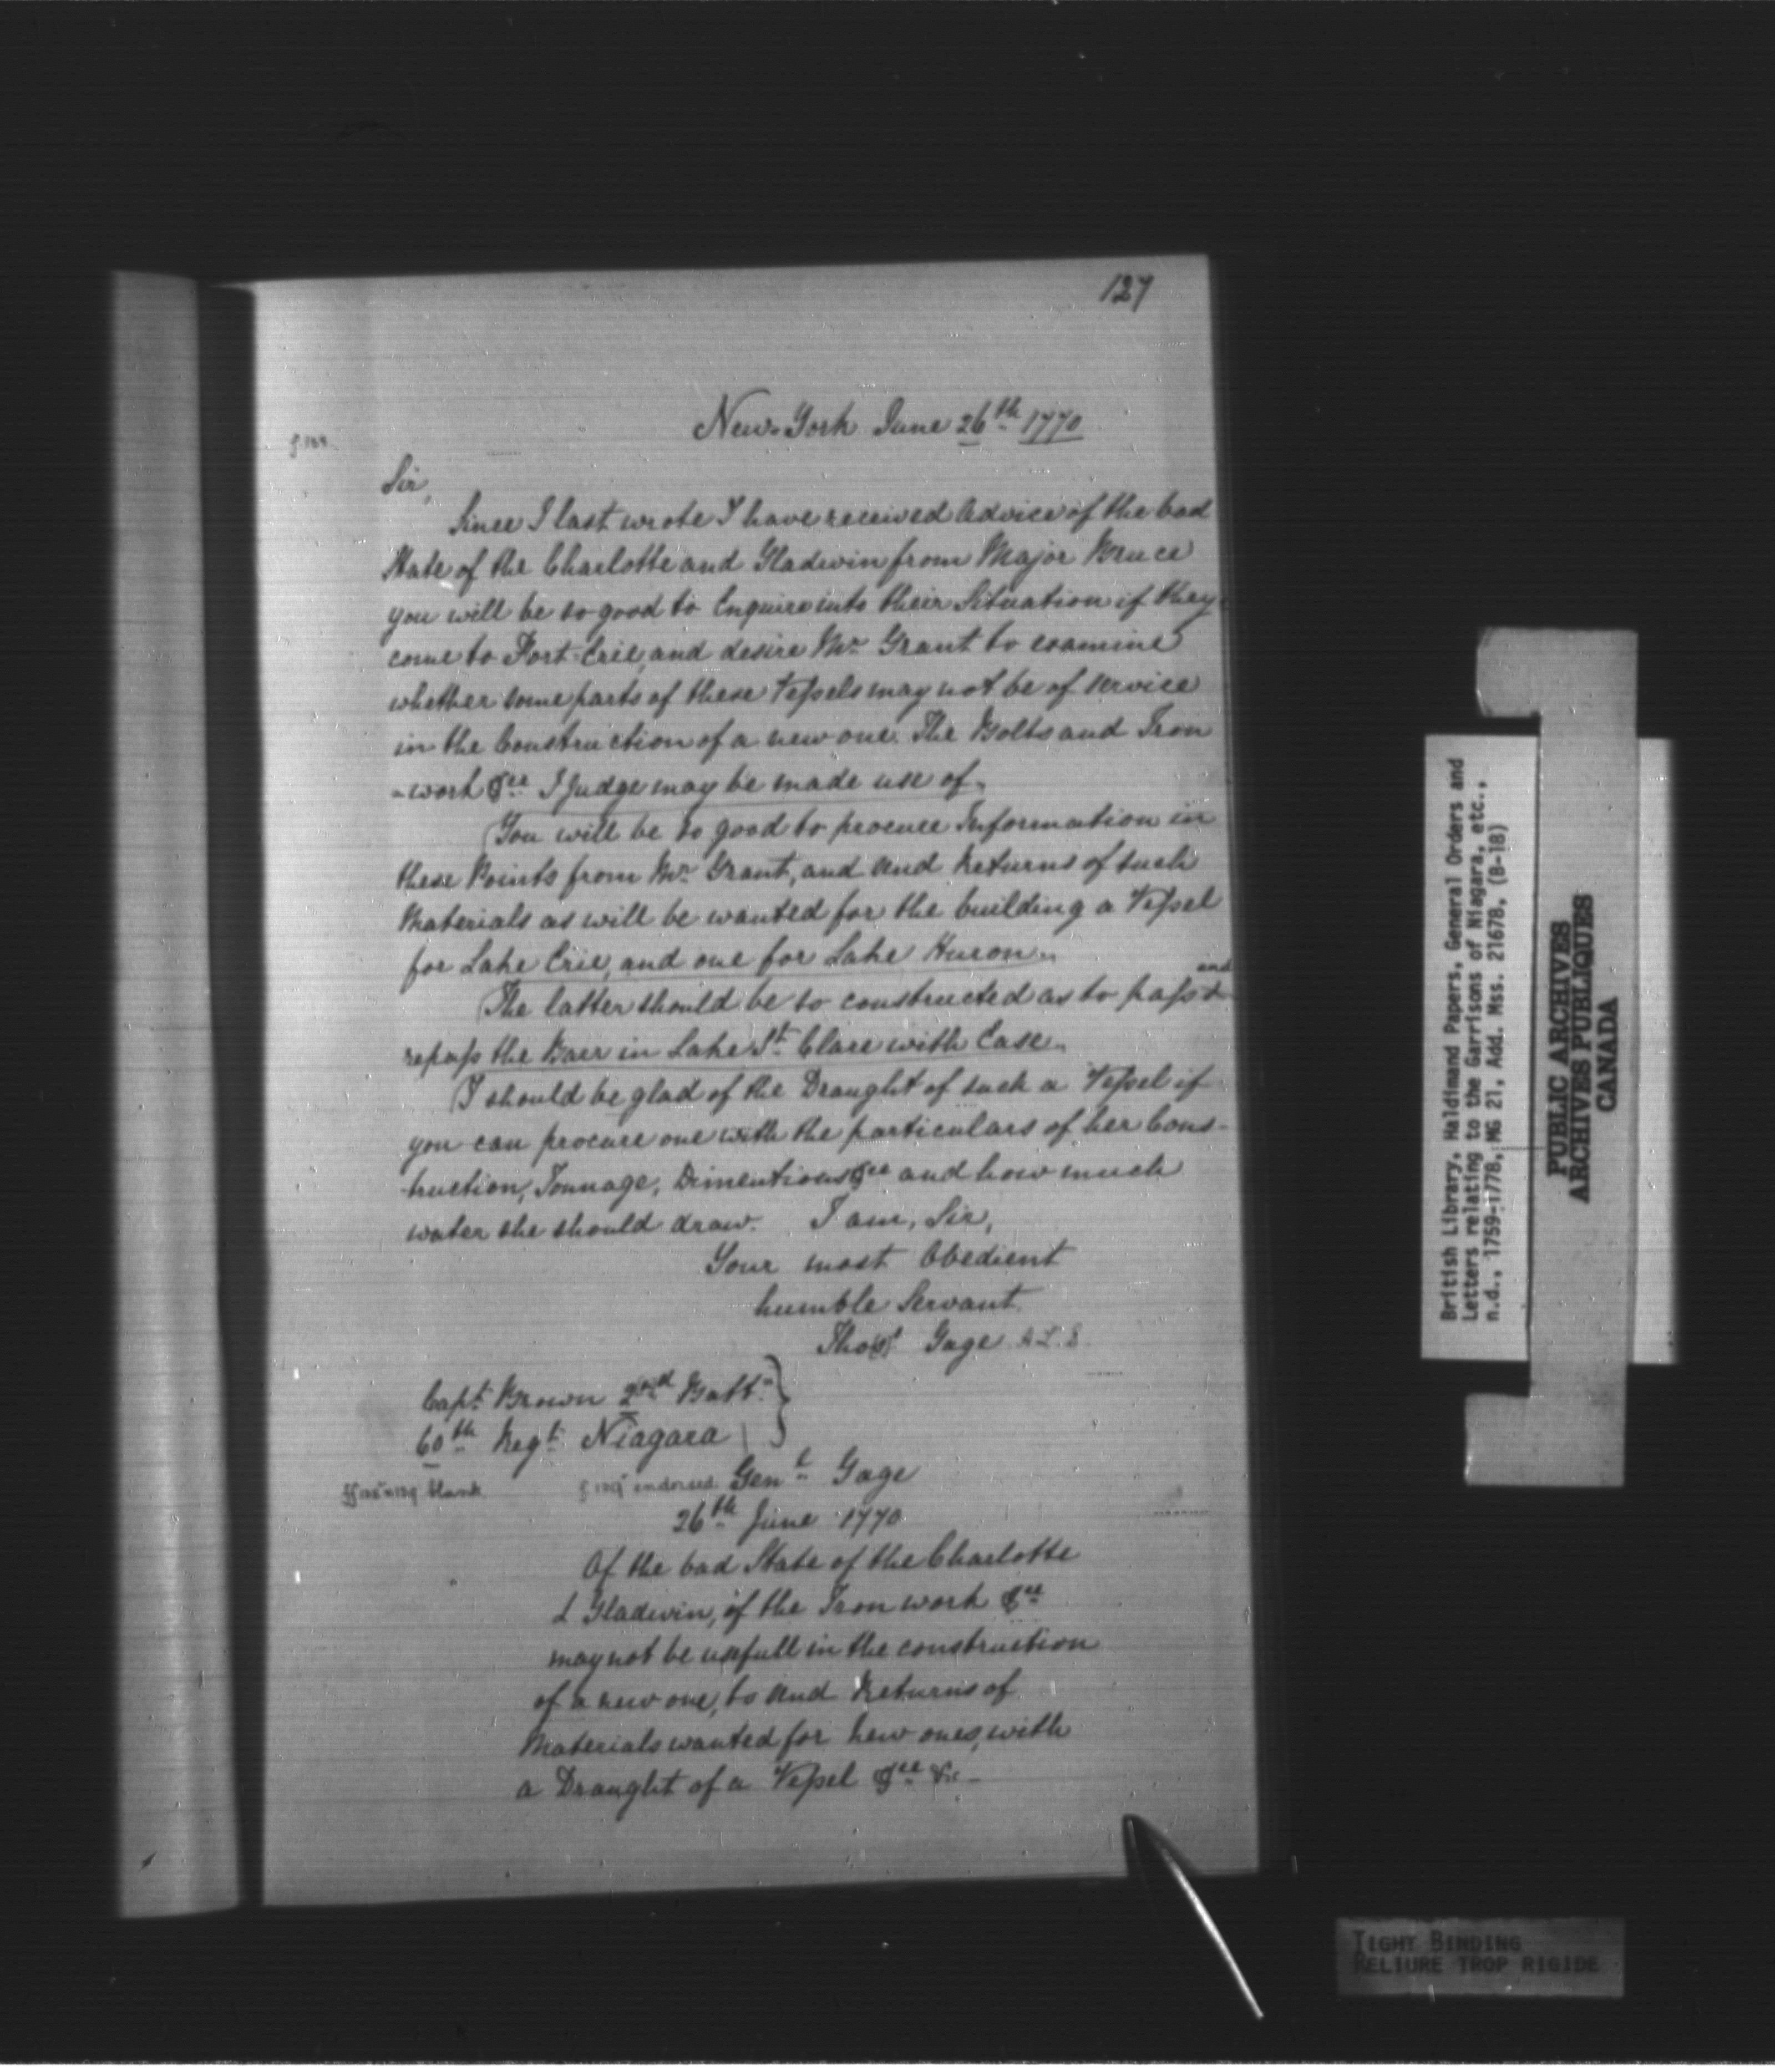 127
New-York June 26th 1770
Sir,
Since I last wrote I have received Advice of the bad
State of the Charlotte and Gladwin from Major Bruce
you will be so good to Enquire into their Situation if they
come to Fort-Erie, and desire Mr Grant to examine
whether some parts of these Veſsels may not be of service
in the Construction of a new one. The Bolts and Iron
-work &ca I judge may be made use of.
You will be so good to procure Information in
these Points from Mr Grant, and send Returns of such
Materials as will be wanted for the building a Veſsel
for Lake Erie, and one for Lake Huron.
and
The latter should be so constructed as to paſs &
repaſs the Barr in Lake St Clare with Ease.
I should be glad of the Draught of such a Veſsel if
you can procure one with the particulars of her Cons-
truction, Tonnage, Dimentions &ca and how much
water she should draw. I am, Sir,
Your most Obedient
humble Servant.
Thos Gage A.L.S.
Capt Brown 2nd Batt.n
60th Regt Niagara
blank. endorsed. Genl Gage
26th June 1770
Of the bad State of the Charlotte
& Gladwin, if the Iron work &ca
may not be usefull in the construction
of a new one, to send Returns of
Materials wanted for new ones, with
a Draught of a Veſsel &ca &c -
British Library, Haldimand Papers, General Orders and
Letters relating to the Garrisons of Niagara, etc.,
n.d., 1759-1778, MG 21, Add. Mss. 21678, (B-18)
PUBLIC ARCHIVES
ARCHIVES PUBLIQUES
CANADA
TIGHT BINDING
RELIURE TROP RIGIDE